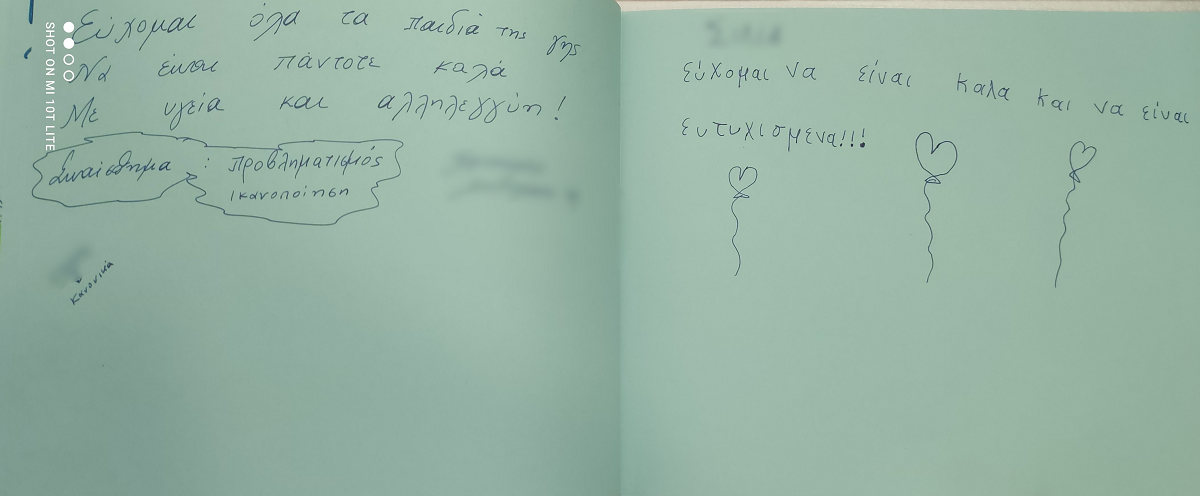 Εύχομαι όλα τα παιδιά της γης
Να είναι πάντοτε καλά
Με υγεία και αλληλεγγύη!
Συναίσθημα : προβληματισμός
ικανοποίηση
κανονικά
SHOT ON MI 10T LITE
εύχομαι να είναι καλα και να είναι
ευτυχισμενα!!!